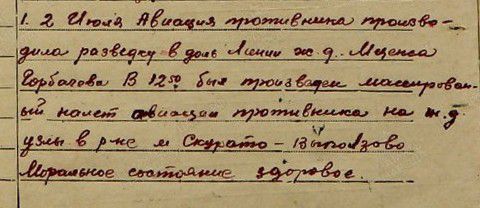 1. 2 Июля Авиация противника произво-
дила разведку в доль Линии ж.д. Мценск
Горбачова В 12⁵⁰ был произведен массирован-
ый налет авиации противника на ж.д.
узлы в р-не м Скурато - Выползово
Моральное состояние здоровое.